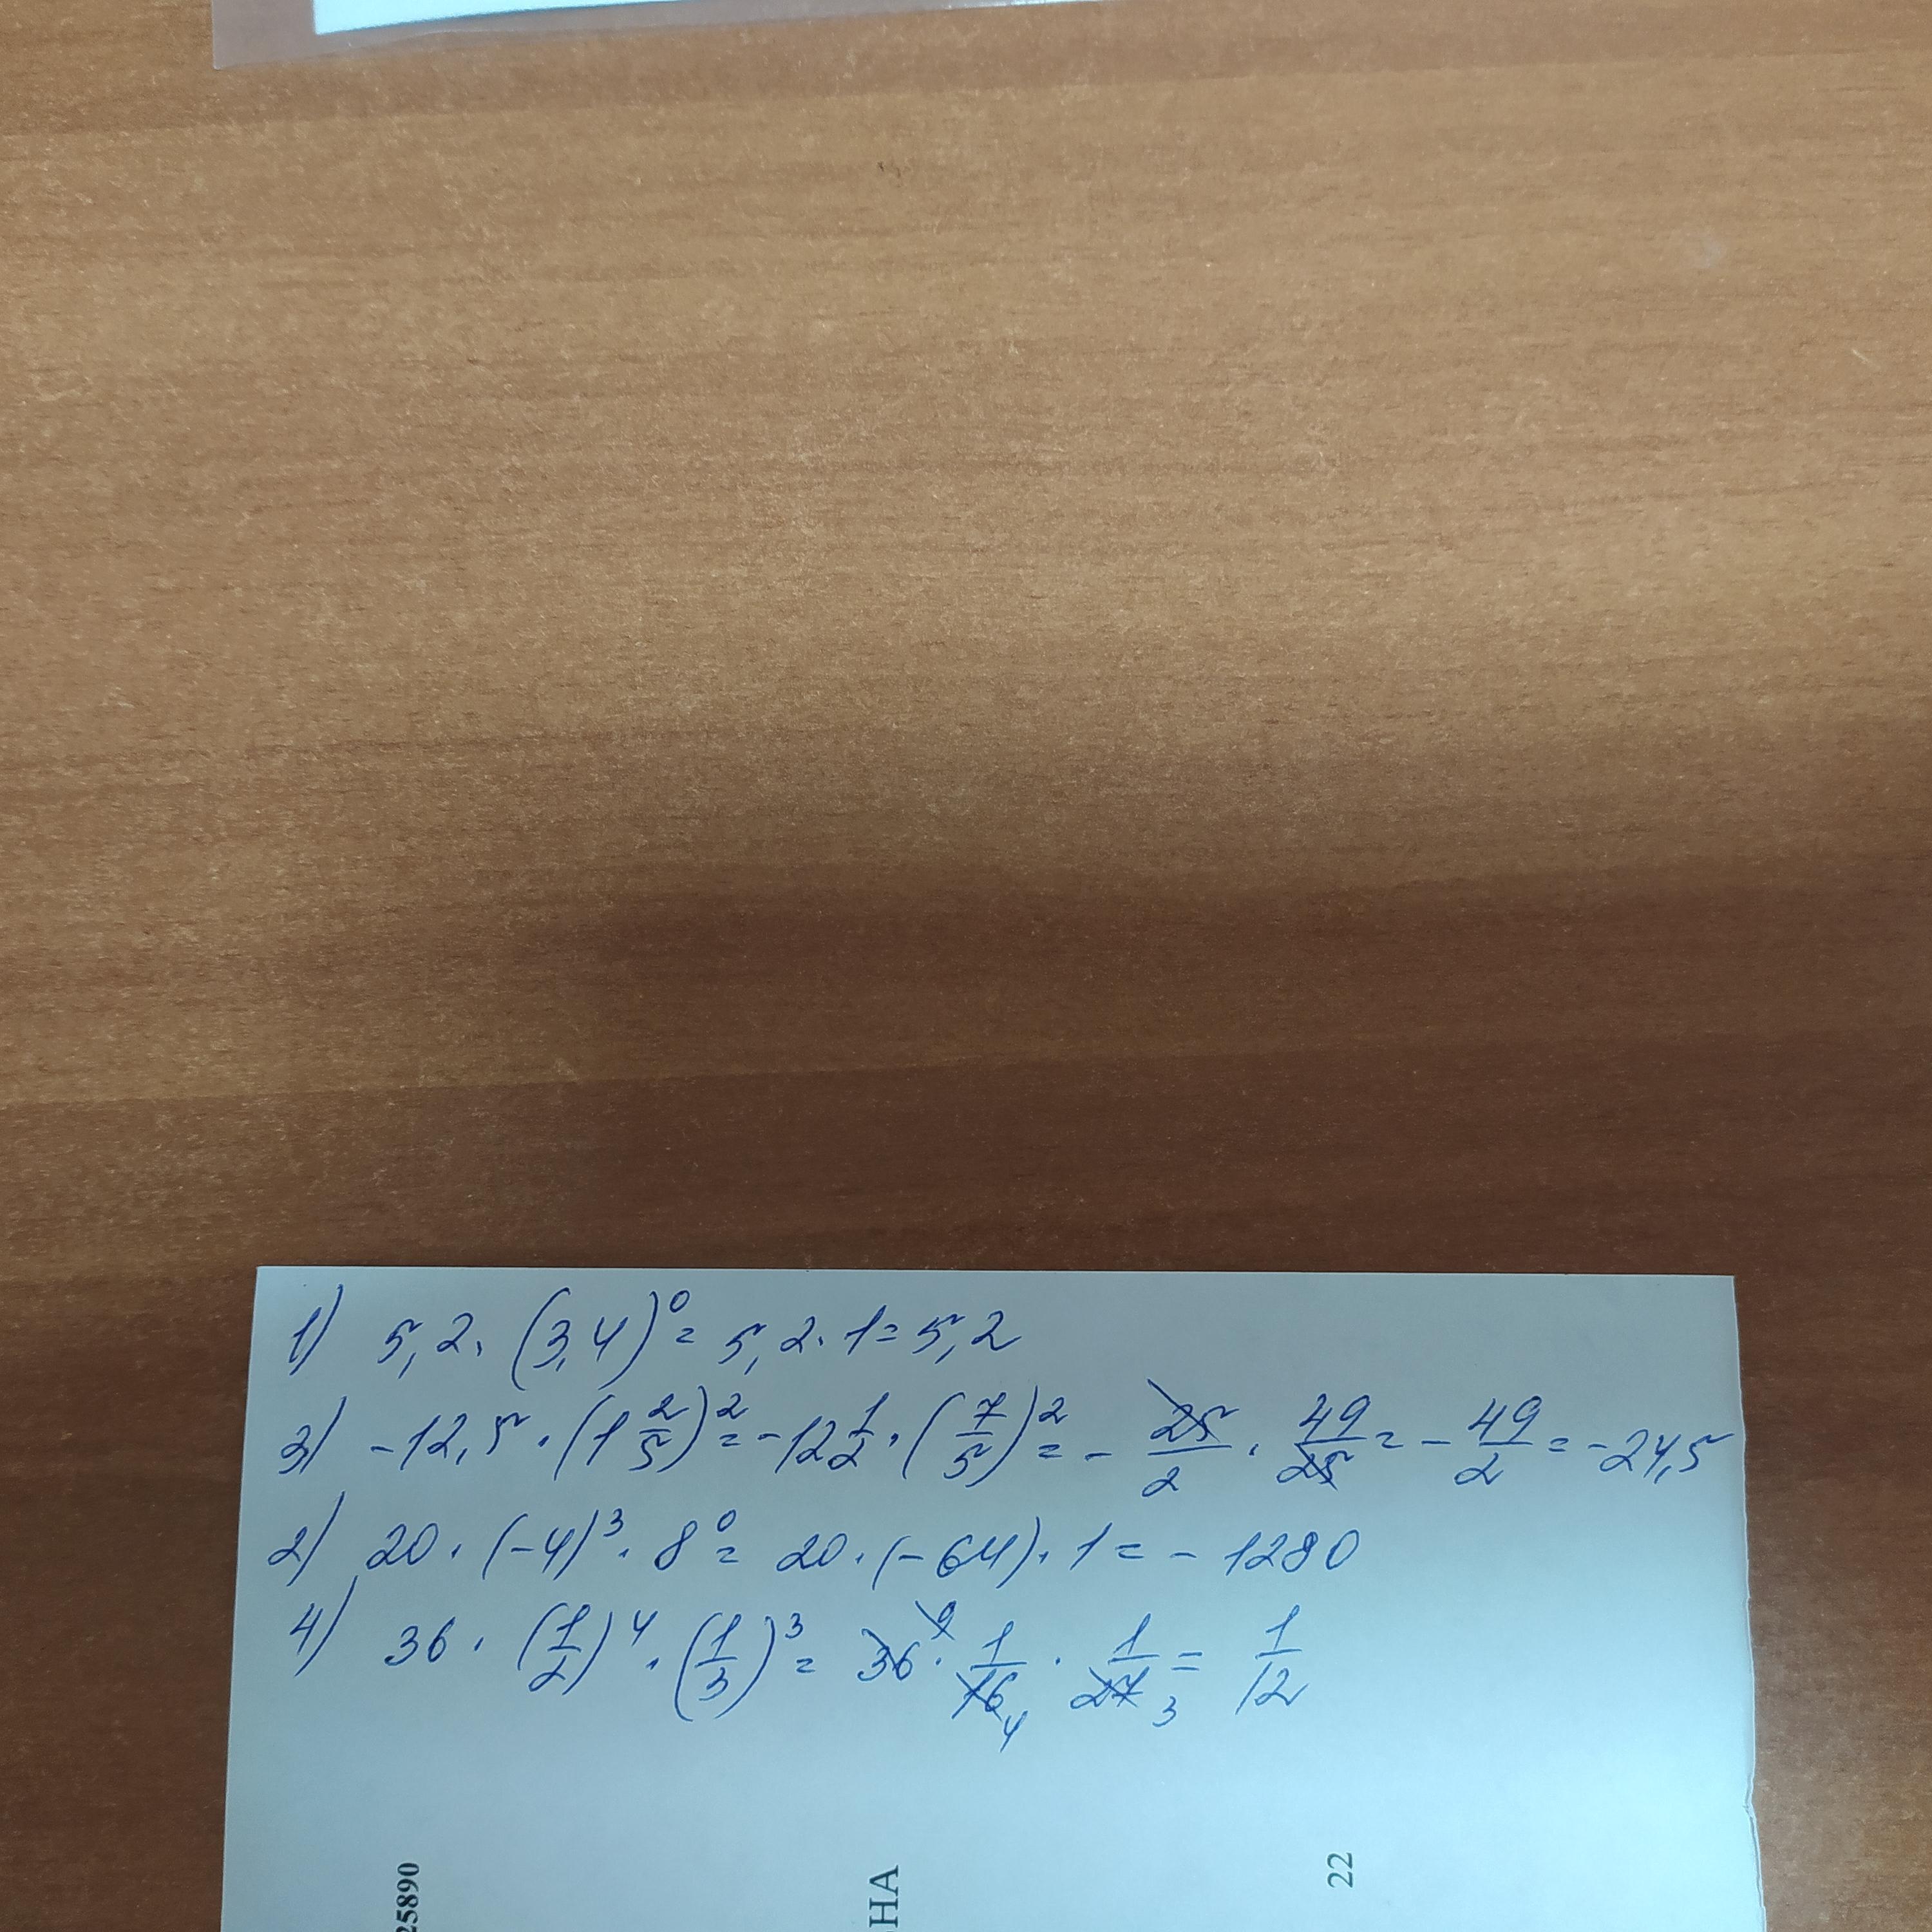 1) 5,2 · (3,4)⁰ = 5,2 · 1 = 5,2
3) -12,5 · (1 2/5)² = -12 1/2 · (7/5)² = - 25/2 · 49/25 = - 49/2 = -24,5
2) 20 · (-4)³ · 8⁰ = 20 · (-64) · 1 = - 1280
4) 36 · (1/2)⁴ · (1/3)³ = 36 9 · 1/16 4 · 1/27 3 = 1/12
25890
НА
22